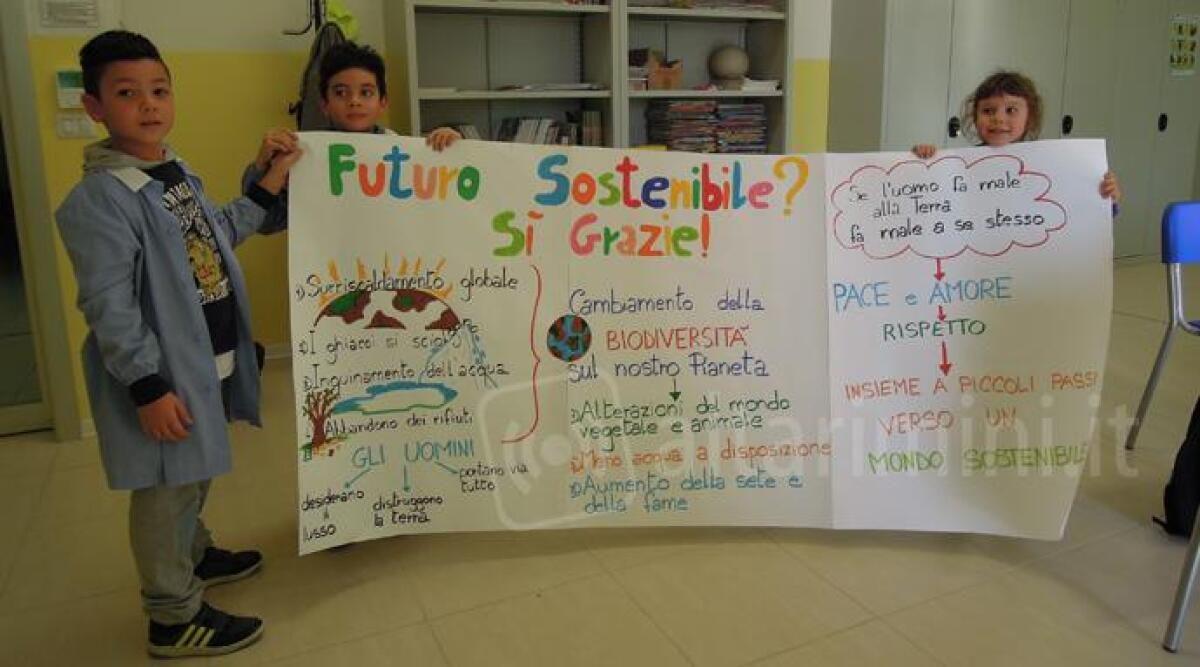 Futuro Sostenibile?
Sì Grazie!
1) Surriscaldamento globale
2) I ghiacci si sciolgono
3) Inquinamento dell'acqua
Abbandono dei rifiuti
GLI UOMINI
desiderano
il
lusso
distruggono
la terra
portano via
tutto
Cambiamento della
BIODIVERSITÀ
sul nostro Pianeta
1) Alterazioni del mondo
vegetale e animale
2) Meno acqua a disposizione
3) Aumento della sete e
della fame
Se l'uomo fa male
alla Terra
fa male a se stesso
PACE e AMORE
RISPETTO
INSIEME A PICCOLI PASSI
VERSO UN
MONDO SOSTENIBILE
altarimini.it